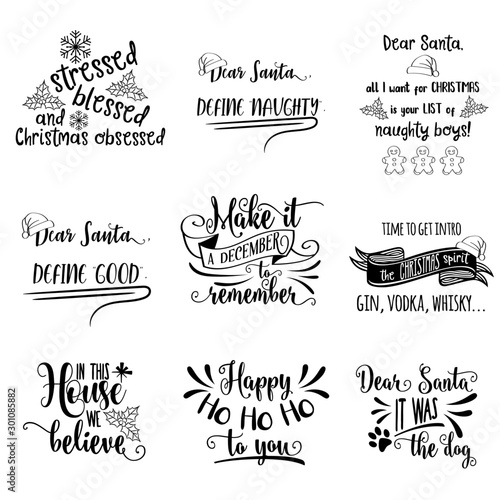 stressed
blessed
and
Christmas obsessed
Dear Santa,
DEFINE NAUGHTY.
Dear Santa,
all I want for CHRISTMAS
is your LIST of
naughty boys!
Dear Santa,
DEFINE GOOD.
Make it
A DECEMBER
to
remember
TIME TO GET INTRO
the CHRISTMAS spirit
GIN, VODKA, WHISKY...
IN THIS
House
WE
believe
Happy
HO HO HO
to you
Dear Santa
IT WAS
the dog
Adobe Stock | #301085882